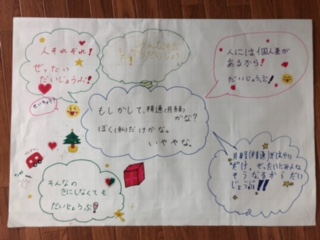 人それぞれ!
ぜったい
だいじょうぶ!
人には個人差が
あるから!
だいじょうぶ!
もしかして、精通(月経)
かな?
ぼく(私)だけかな。
いややな。
月経(精通)は
だけ、ぜったいみんな
そうなるからだい
じょうぶ!!
そんなの
きにしなくても
だいじょうぶ!